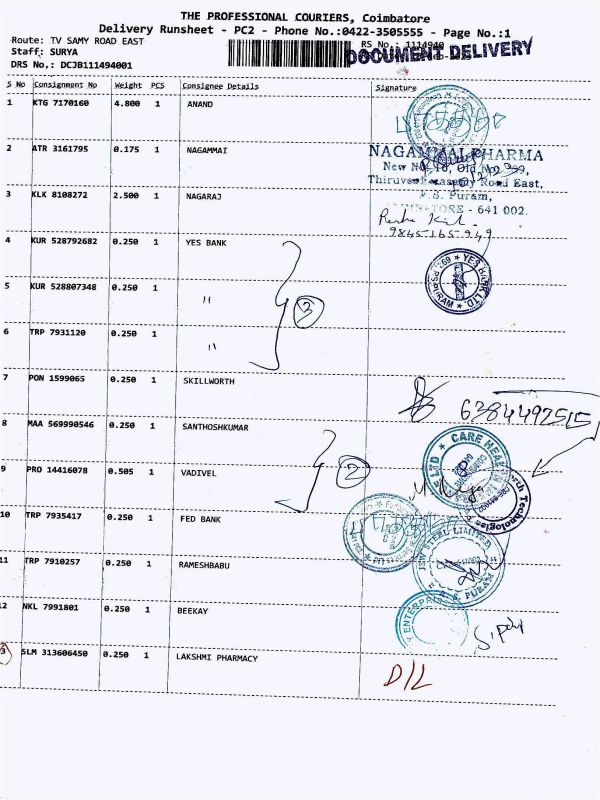 THE PROFESSIONAL COURIERS, Coimbatore
Delivery Runsheet - PC2 - Phone No.:0422-3505555 - Page No.:1
Route: TV SAMY ROAD EAST
RS No.: 1114940
DOCUMENT DELIVERY
Staff: SURYA
DRS No.: DCJB111494001
S No Consignment No Weight PCS Consignee Details Signature
1 KTG 7170160 4.800 1 ANAND
2 ATR 3161795 0.175 1 NAGAMMAI
NAGAMMAI PHARMA
Road East,
R.S. Puram,
- 641 002.
3 KLK 8108272 2.500 1 NAGARAJ
9845165949
4 KUR 528792682 0.250 1 YES BANK
YES BANK LTD.
5 KUR 528807348 0.250 1 "
3
6 TRP 7931120 0.250 1 "
7 PON 1599065 0.250 1 SKILLWORTH
6384492515
8 MAA 569990546 0.250 1 SANTHOSHKUMAR
CARE HEALTH
LTD
2
9 PRO 14416078 0.505 1 VADIVEL
Technologies
10 TRP 7935417 0.250 1 FED BANK
JSW STEEL LIMITED
11 TRP 7910257 0.250 1 RAMESHBABU
R.S. PURAM
12 NKL 7991801 0.250 1 BEEKAY
13 SLM 313606450 0.250 1 LAKSHMI PHARMACY
D/L